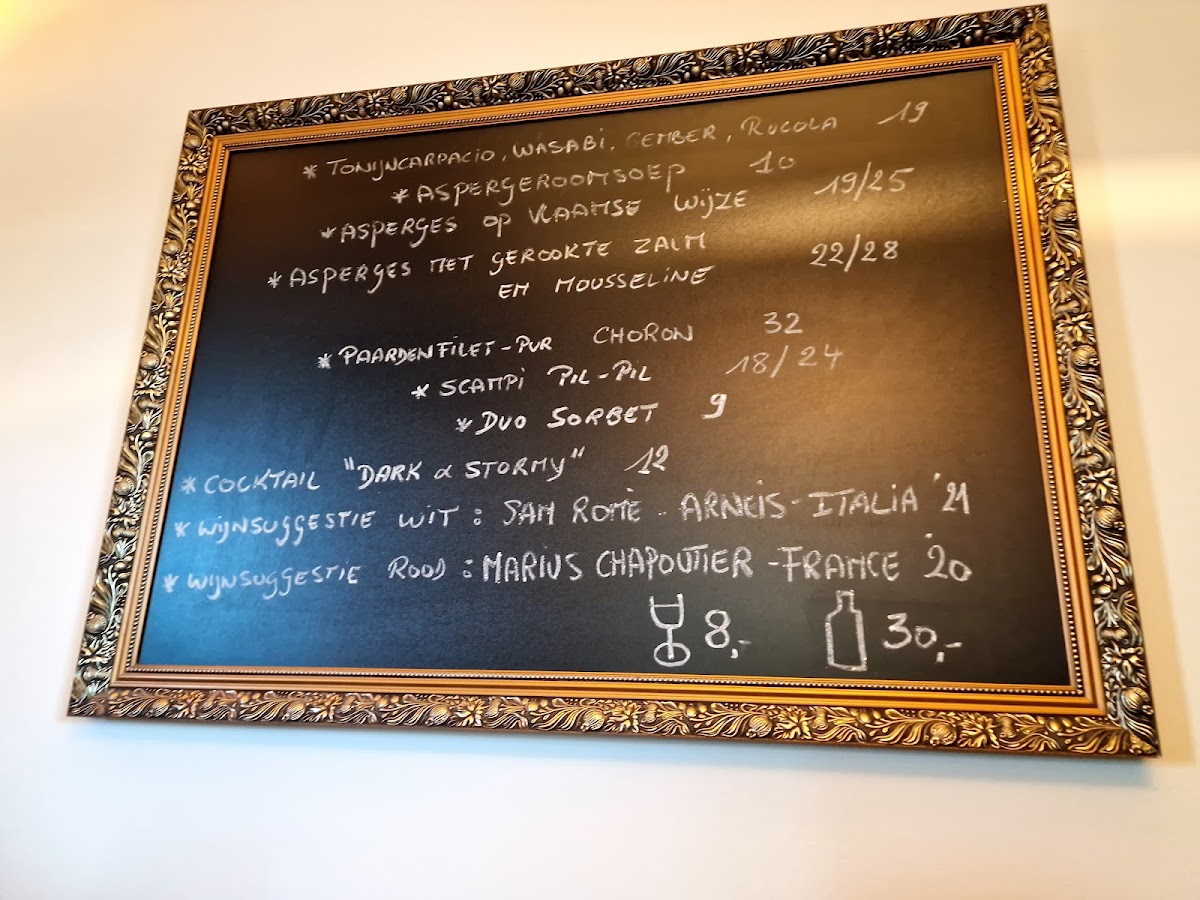 * TONIJNCARPACIO, WASABI, GEMBER, RUCOLA 19
* ASPERGEROOMSOEP 10
* ASPERGES OP VLAAMSE WIJZE 19/25
* ASPERGES MET GEROOKTE ZALM 22/28
EN MOUSSELINE
* PAARDENFILET-PUR CHORON 32
* SCAMPI PIL-PIL 18/24
* DUO SORBET 9
* COCKTAIL "DARK & STORMY" 12
* WIJNSUGGESTIE WIT: SAN ROMÈ - ARNEIS - ITALIA '21
* WIJNSUGGESTIE ROOD: MARIUS CHAPOUTIER - FRANCE '20
8,- 30,-